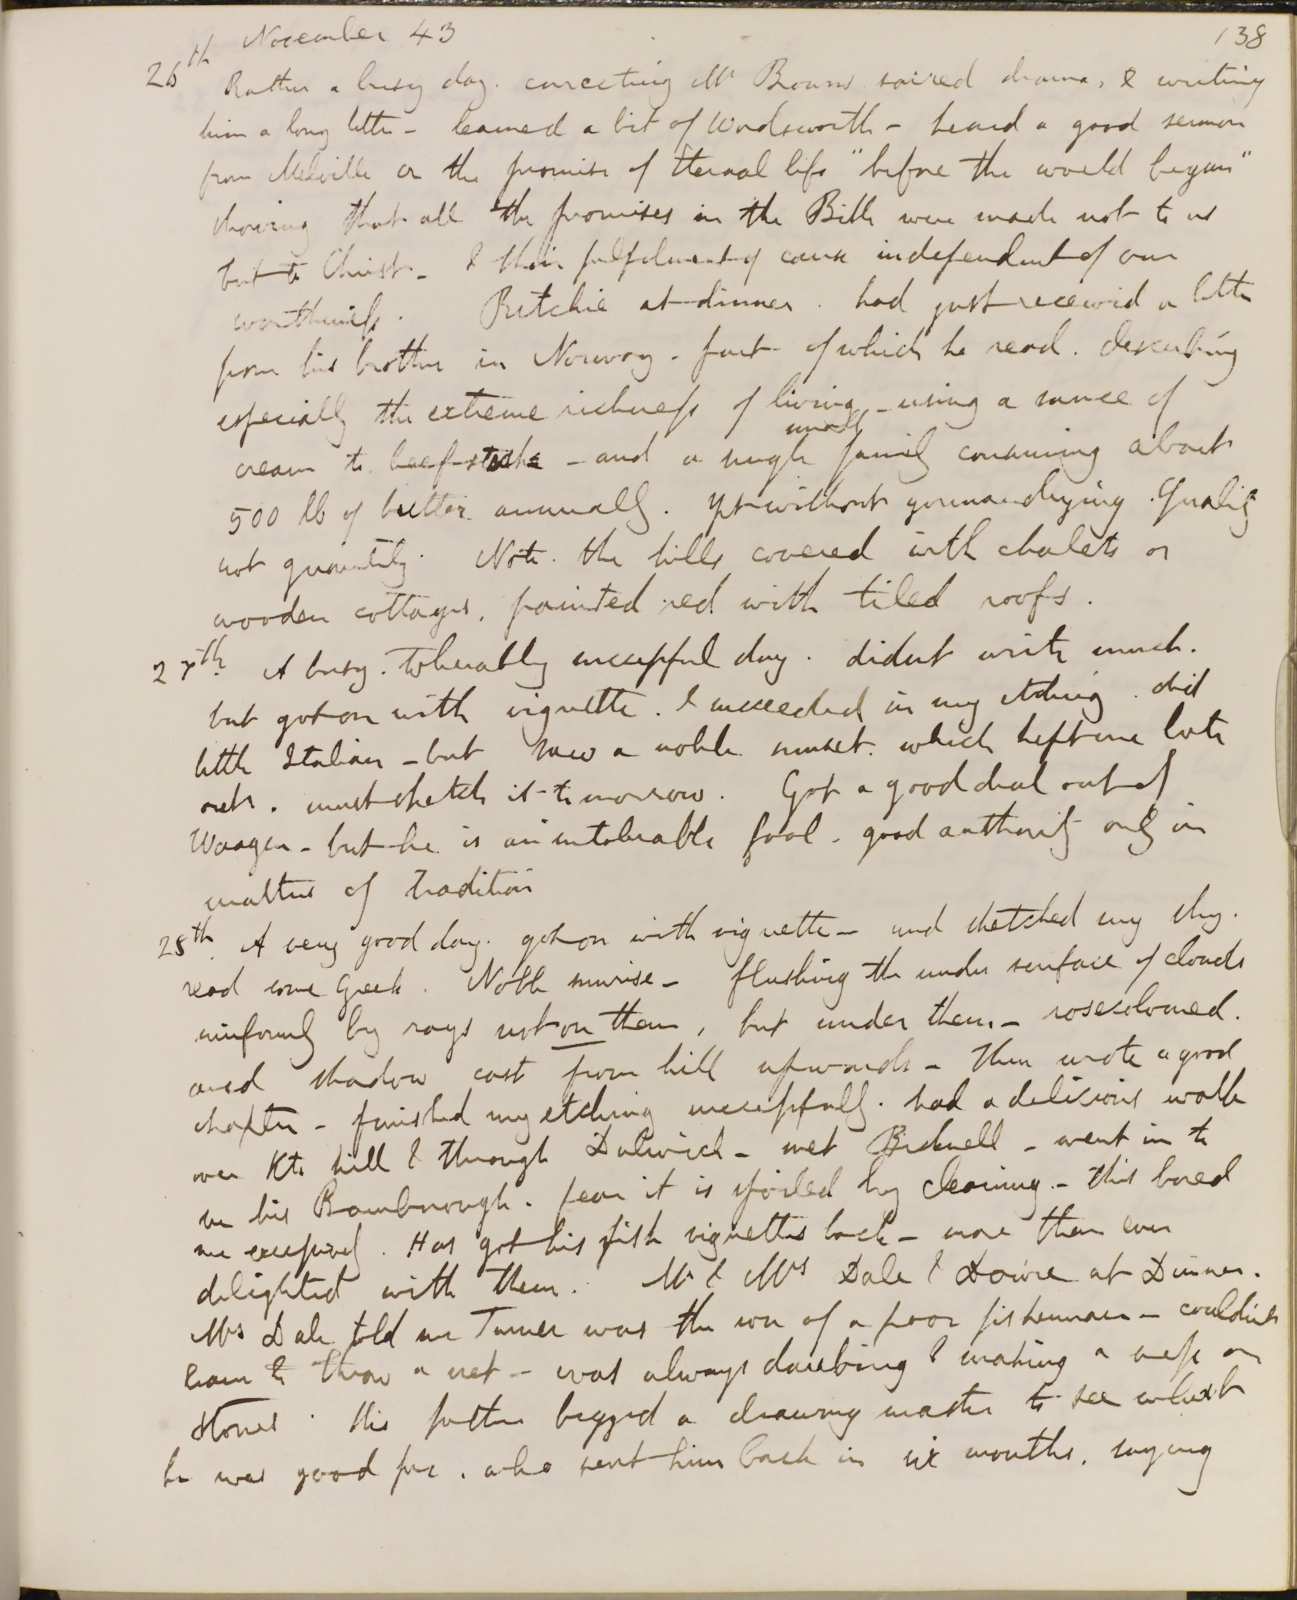 November 43 138
26th Rather a busy day. correcting Mr Browns sacred drama, & writing
him a long letter - learned a bit of Wordsworth - heard a good sermon
from Melville on the promise of Eternal life "before the world began"
showing that all the promises in the Bible were made not to us
but to Christ - & their fulfilment of course independent of our
worthiness. Ritchie at dinner. had just received a letter
from his brother in Norway - part of which he read. describing
especially the extreme richness of living - using a sauce of
cream to beefsteaks - and a single small family consuming about
500 lb of butter annually. yet without gourmandizing. Quality
not quantity Note. the hills covered with chalets or
wooden cottages, painted red with tiled roofs.
27th. A busy. tolerably successful day. didnt write much.
but got on with vignette. & succeeded in my etching. did
little Italian - but saw a noble sunset. which kept me late
out. must sketch it tomorrow. Got a good deal out of
Waagen - but he is an intolerable fool - good authority only in
matters of tradition
28th. A very good day. got on with vignette - and sketched my sky.
read some Greek. Noble sunrise - flushing the under surface of clouds
uniformly by rays not on them, but under them - rosecoloured.
and shadow cast from hill upwards - Then wrote a good
chapter - finished my etching successfully. had a delicious walk
over hill & through Dulwich - met Bicknell - went in to
see his Bamborough. fear it is spoiled by cleaning - this bored
me excessively. Has got his fish vignettes back - more than ever
delighted with them. Mr & Mrs Dale & at Dinner.
Mrs Dale told me Turner was the son of a poor fisherman - couldnt
learn to throw a net - was always daubing & making a mess on
stones. His father begged a drawing master to see what
he was good for. who sent him back in six months, saying